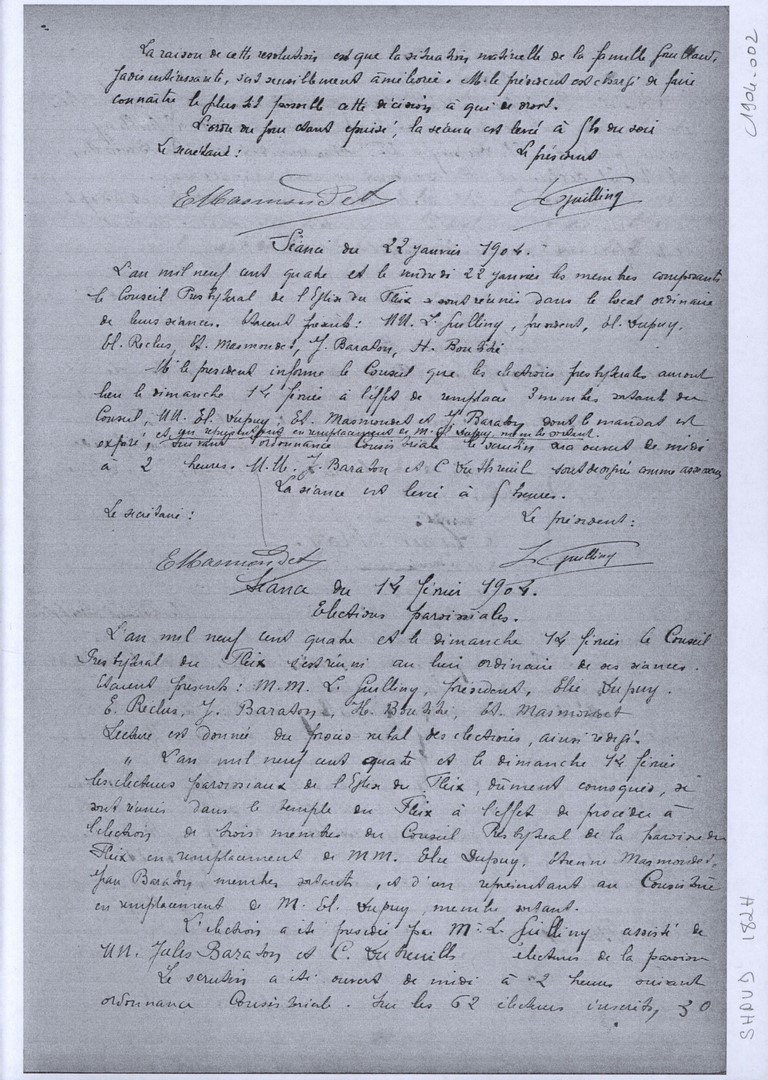 La raison de cette résolution est que la situation matérielle de la famille
jadis intéressante, s'est sensiblement améliorée. M. le président est chargé de faire
connaître le plus tôt possible cette décision à qui de droit.
L'ordre du jour étant épuisé, la séance est levée à 5h du soir
Le secrétaire : Le président
E Masmondet L Guilling
Séance du 22 janvier 1904.
L'an mil neuf cent quatre et le vendredi 22 janvier les membres composants
le Conseil Presbytéral de l'Eglise du Fleix se sont réunis dans le local ordinaire
de leurs séances. Etaient présents : MM. L. Guilling, président, El. Dupuy.
El. Reclus, Et. Masmondet, J. Baraton, H. Bouthié
M. le président informe le Conseil que les élections presbytérales auront
lieu le dimanche 14 février à l'effet de remplacer 3 membres sortant du
Conseil, MM. El. Dupuy, Et. Masmondet et Jn Baraton dont le mandat est
expiré, et un représentant en remplacement de M. El. Dupuy, membre sortant.
Suivant l'ordonnance Consistoriale le scrutin sera ouvert de midi
à 2 heures. M.M. J. Baraton et C Dutreuil sont désignés comme assesseurs
La séance est levée à 5 heures.
Le secrétaire : Le président :
E Masmondet L. Guilling
Séance du 14 février 1904.
Elections paroissiales.
L'an mil neuf cent quatre et le dimanche 14 février le Conseil
Presbytéral du Fleix s'est réuni au lieu ordinaire de ses séances.
Etaient présents : M.M. L. Guilling, président, Elie Dupuy.
E. Reclus, J. Baraton, H. Bouthié, Et. Masmondet
Lecture est donnée du procès verbal des élections, ainsi rédigé.
" L'an mil neuf cent quatre et le dimanche 14 février
les électeurs paroissiaux de l'Eglise du Fleix, dûment convoqués, se
sont réunis dans le temple du Fleix à l'effet de procéder à
l'élection de trois membres du Conseil Presbytéral de la paroisse du
Fleix en remplacement de MM. Elie Dupuy, Etienne Masmondet,
Jean Baraton membres sortants, et d'un représentant au Consistoire
en remplacement de M. El. Dupuy, membre sortant.
L'élection a été présidée par M. L. Guilling assisté de
MM. Jules Baraton et C. Dutreuilh électeurs de la paroisse
Le scrutin a été ouvert de midi à 2 heures suivant
ordonnance Consistoriale. Sur les 62 électeurs inscrits, 30
1904-002
SHPVD 182H